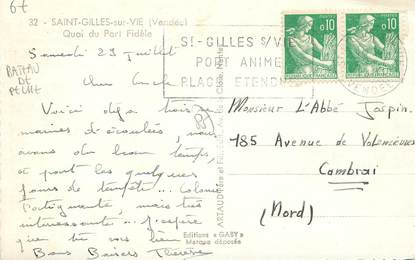 67
32 - SAINT-GILLES-sur-VIE (Vendée)
Quai du Port Fidèle
BATEAU
DE
PÊCHE
Samedi 23 juillet
Cher Oncle
Voici déjà trois se-
maines d'écoulées, nous
avons du beau temps
à part les quelques
jours de tempête... Colonie
fatiguante, mais très
intéressante... J'espère
que tu vas bien
Bons Baisers Thérèse
ST-GILLES S/VIE
PORT ANIME
PLAGE ETENDUE
0,10
0,10
VENDEE
Editions "GABY"
Marque déposée
Monsieur L'Abbé Jaspin.
185 Avenue de Valenciennes
Cambrai
(Nord)